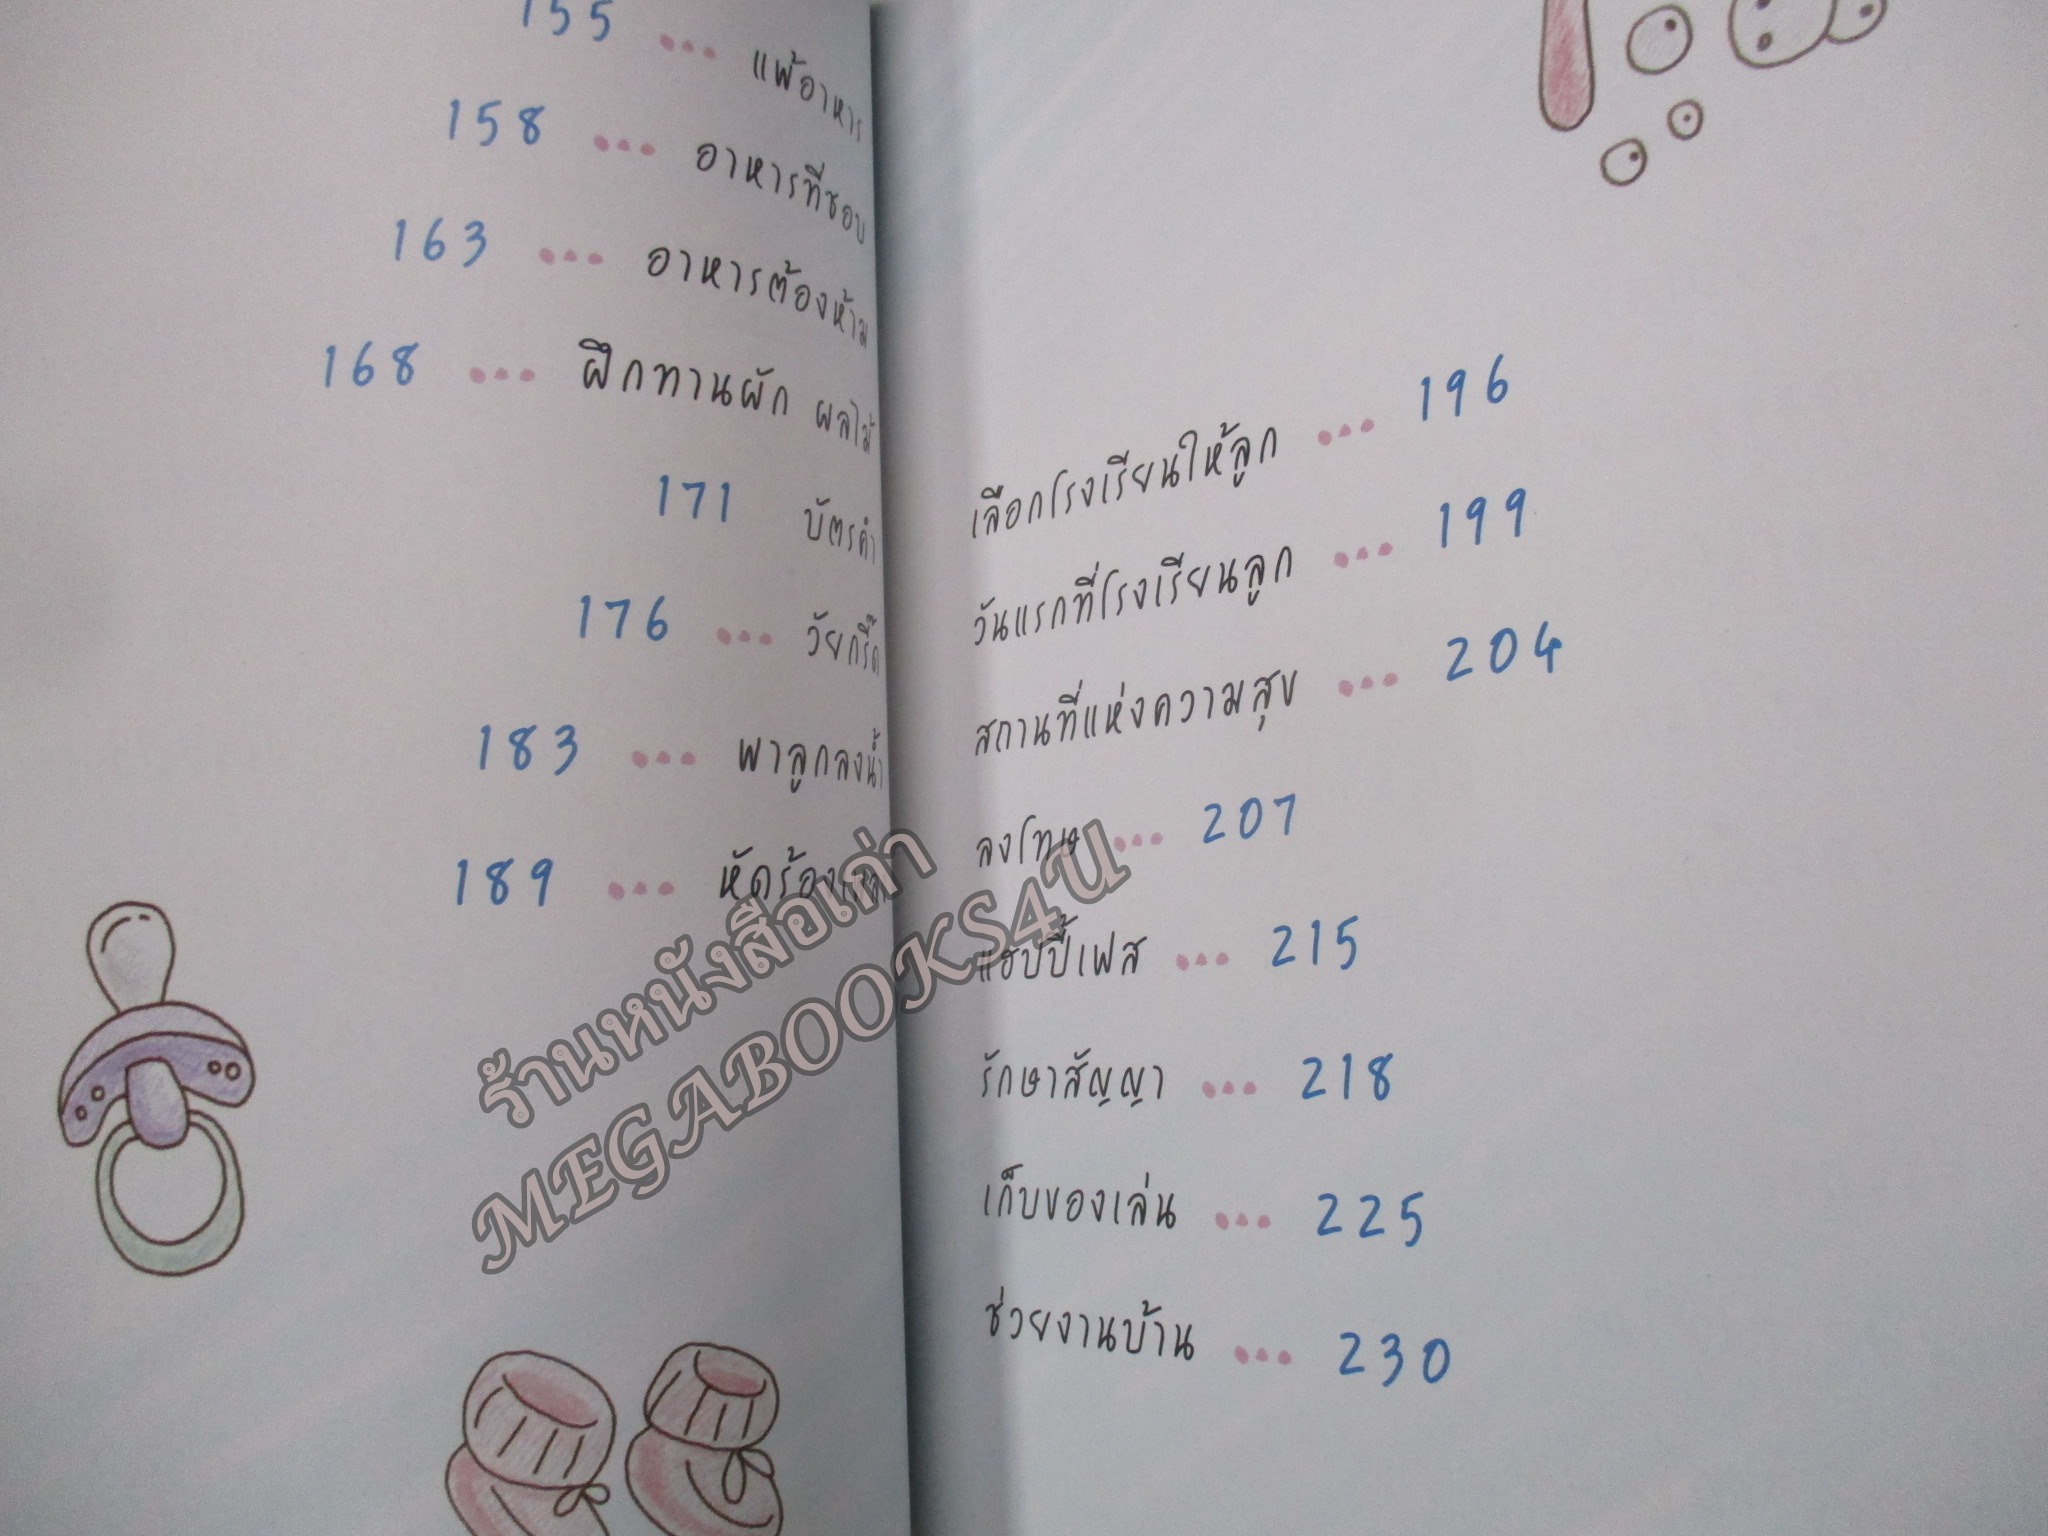 155 ... แพ้อาหาร
158 ... อาหารที่ชอบ
163 ... อาหารต้องห้าม
168 ... ฝึกทานผัก ผลไม้
171 บัตรคำ
176 ... วัยกรี๊ด
183 ... พาลูกลงน้ำ
189 ... หัดร้องเพลง
เลือกโรงเรียนให้ลูก ... 196
วันแรกที่โรงเรียนลูก ... 199
สถานที่แห่งความสุข ... 204
ลงโทษ ... 207
แฮปปี้เฟส ... 215
รักษาสัญญา ... 218
เก็บของเล่น ... 225
ช่วยงานบ้าน ... 230
ร้านหนังสือเก่า
MEGABOOKS4U